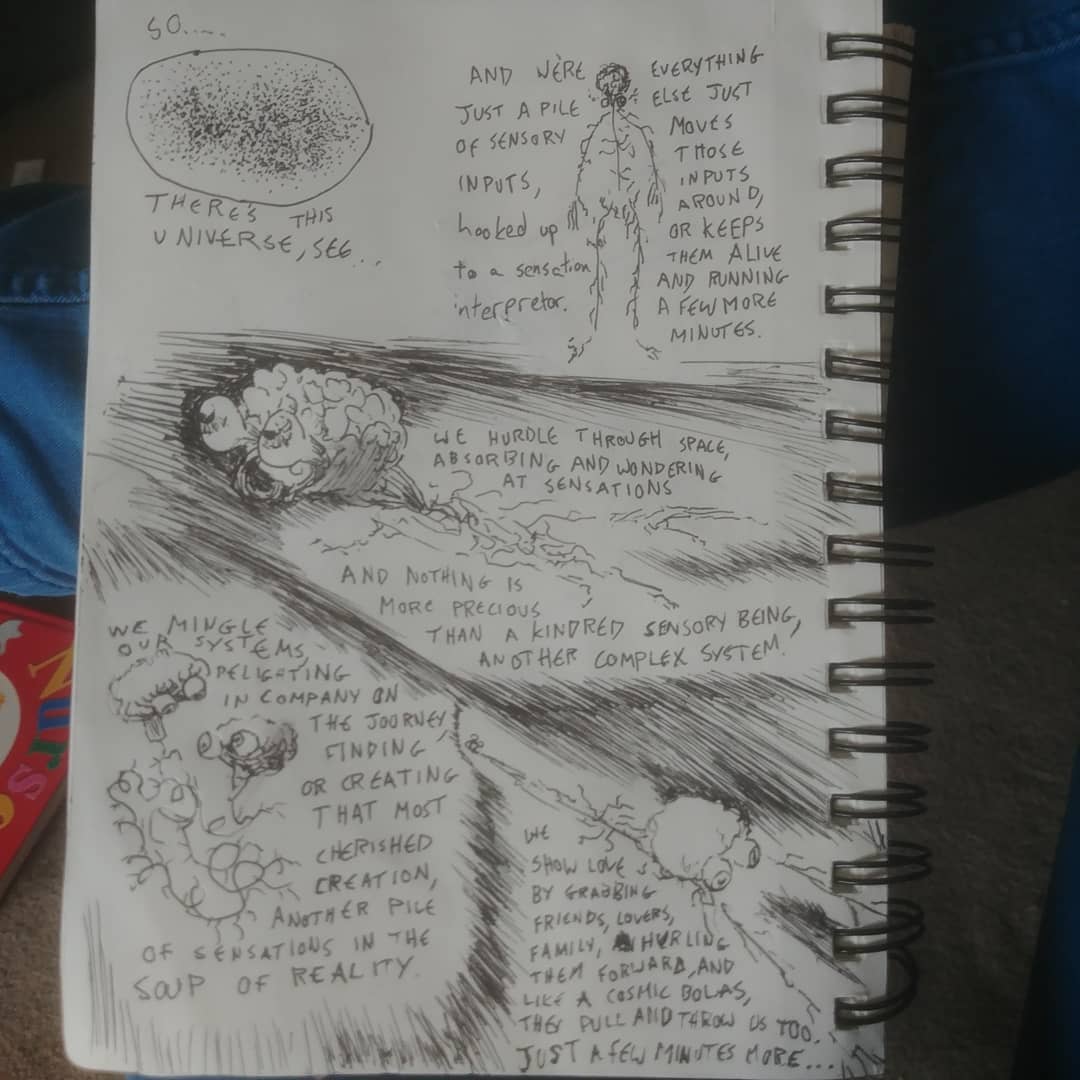 SO....
THERE'S THIS
UNIVERSE, SEE...
AND WE'RE
JUST A PILE
OF SENSORY
INPUTS,
hooked up
to a sensation
interpretor.
EVERYTHING
ELSE JUST
MOVES
THOSE
INPUTS
AROUND,
OR KEEPS
THEM ALIVE
AND RUNNING
A FEW MORE
MINUTES.
WE HURDLE THROUGH SPACE,
ABSORBING AND WONDERING
AT SENSATIONS
AND NOTHING IS
MORE PRECIOUS
THAN A KINDRED SENSORY BEING,
ANOTHER COMPLEX SYSTEM.
WE MINGLE
OUR SYSTEMS,
DELIGHTING
IN COMPANY ON
THE JOURNEY,
FINDING
OR CREATING
THAT MOST
CHERISHED
CREATION,
ANOTHER PILE
OF SENSATIONS IN THE
SOUP OF REALITY.
WE
SHOW LOVE
BY GRABBING
FRIENDS, LOVERS,
FAMILY, HURLING
THEM FORWARD, AND
LIKE A COSMIC BOLAS,
THEY PULL AND THROW US TOO.
JUST A FEW MINUTES MORE...
Nurs